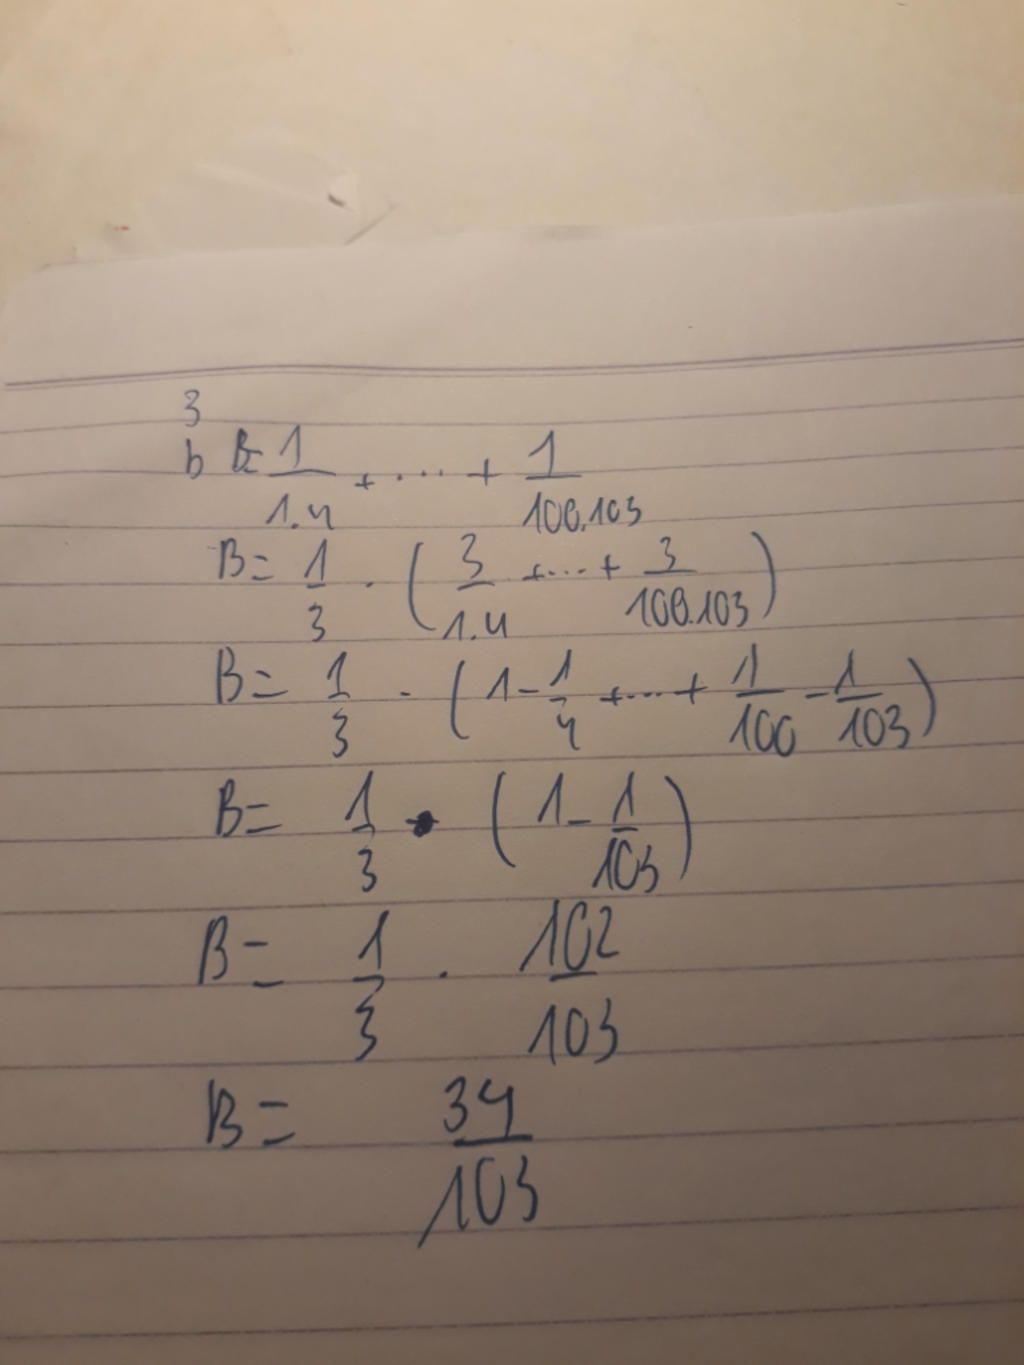 3
b B= 1/1.4 + ... + 1/100.103
B= 1/3 . (3/1.4 +...+ 3/100.103)
B= 1/3 . (1-1/4 +...+ 1/100 - 1/103)
B= 1/3 . (1-1/103)
B= 1/3 . 102/103
B= 34/103